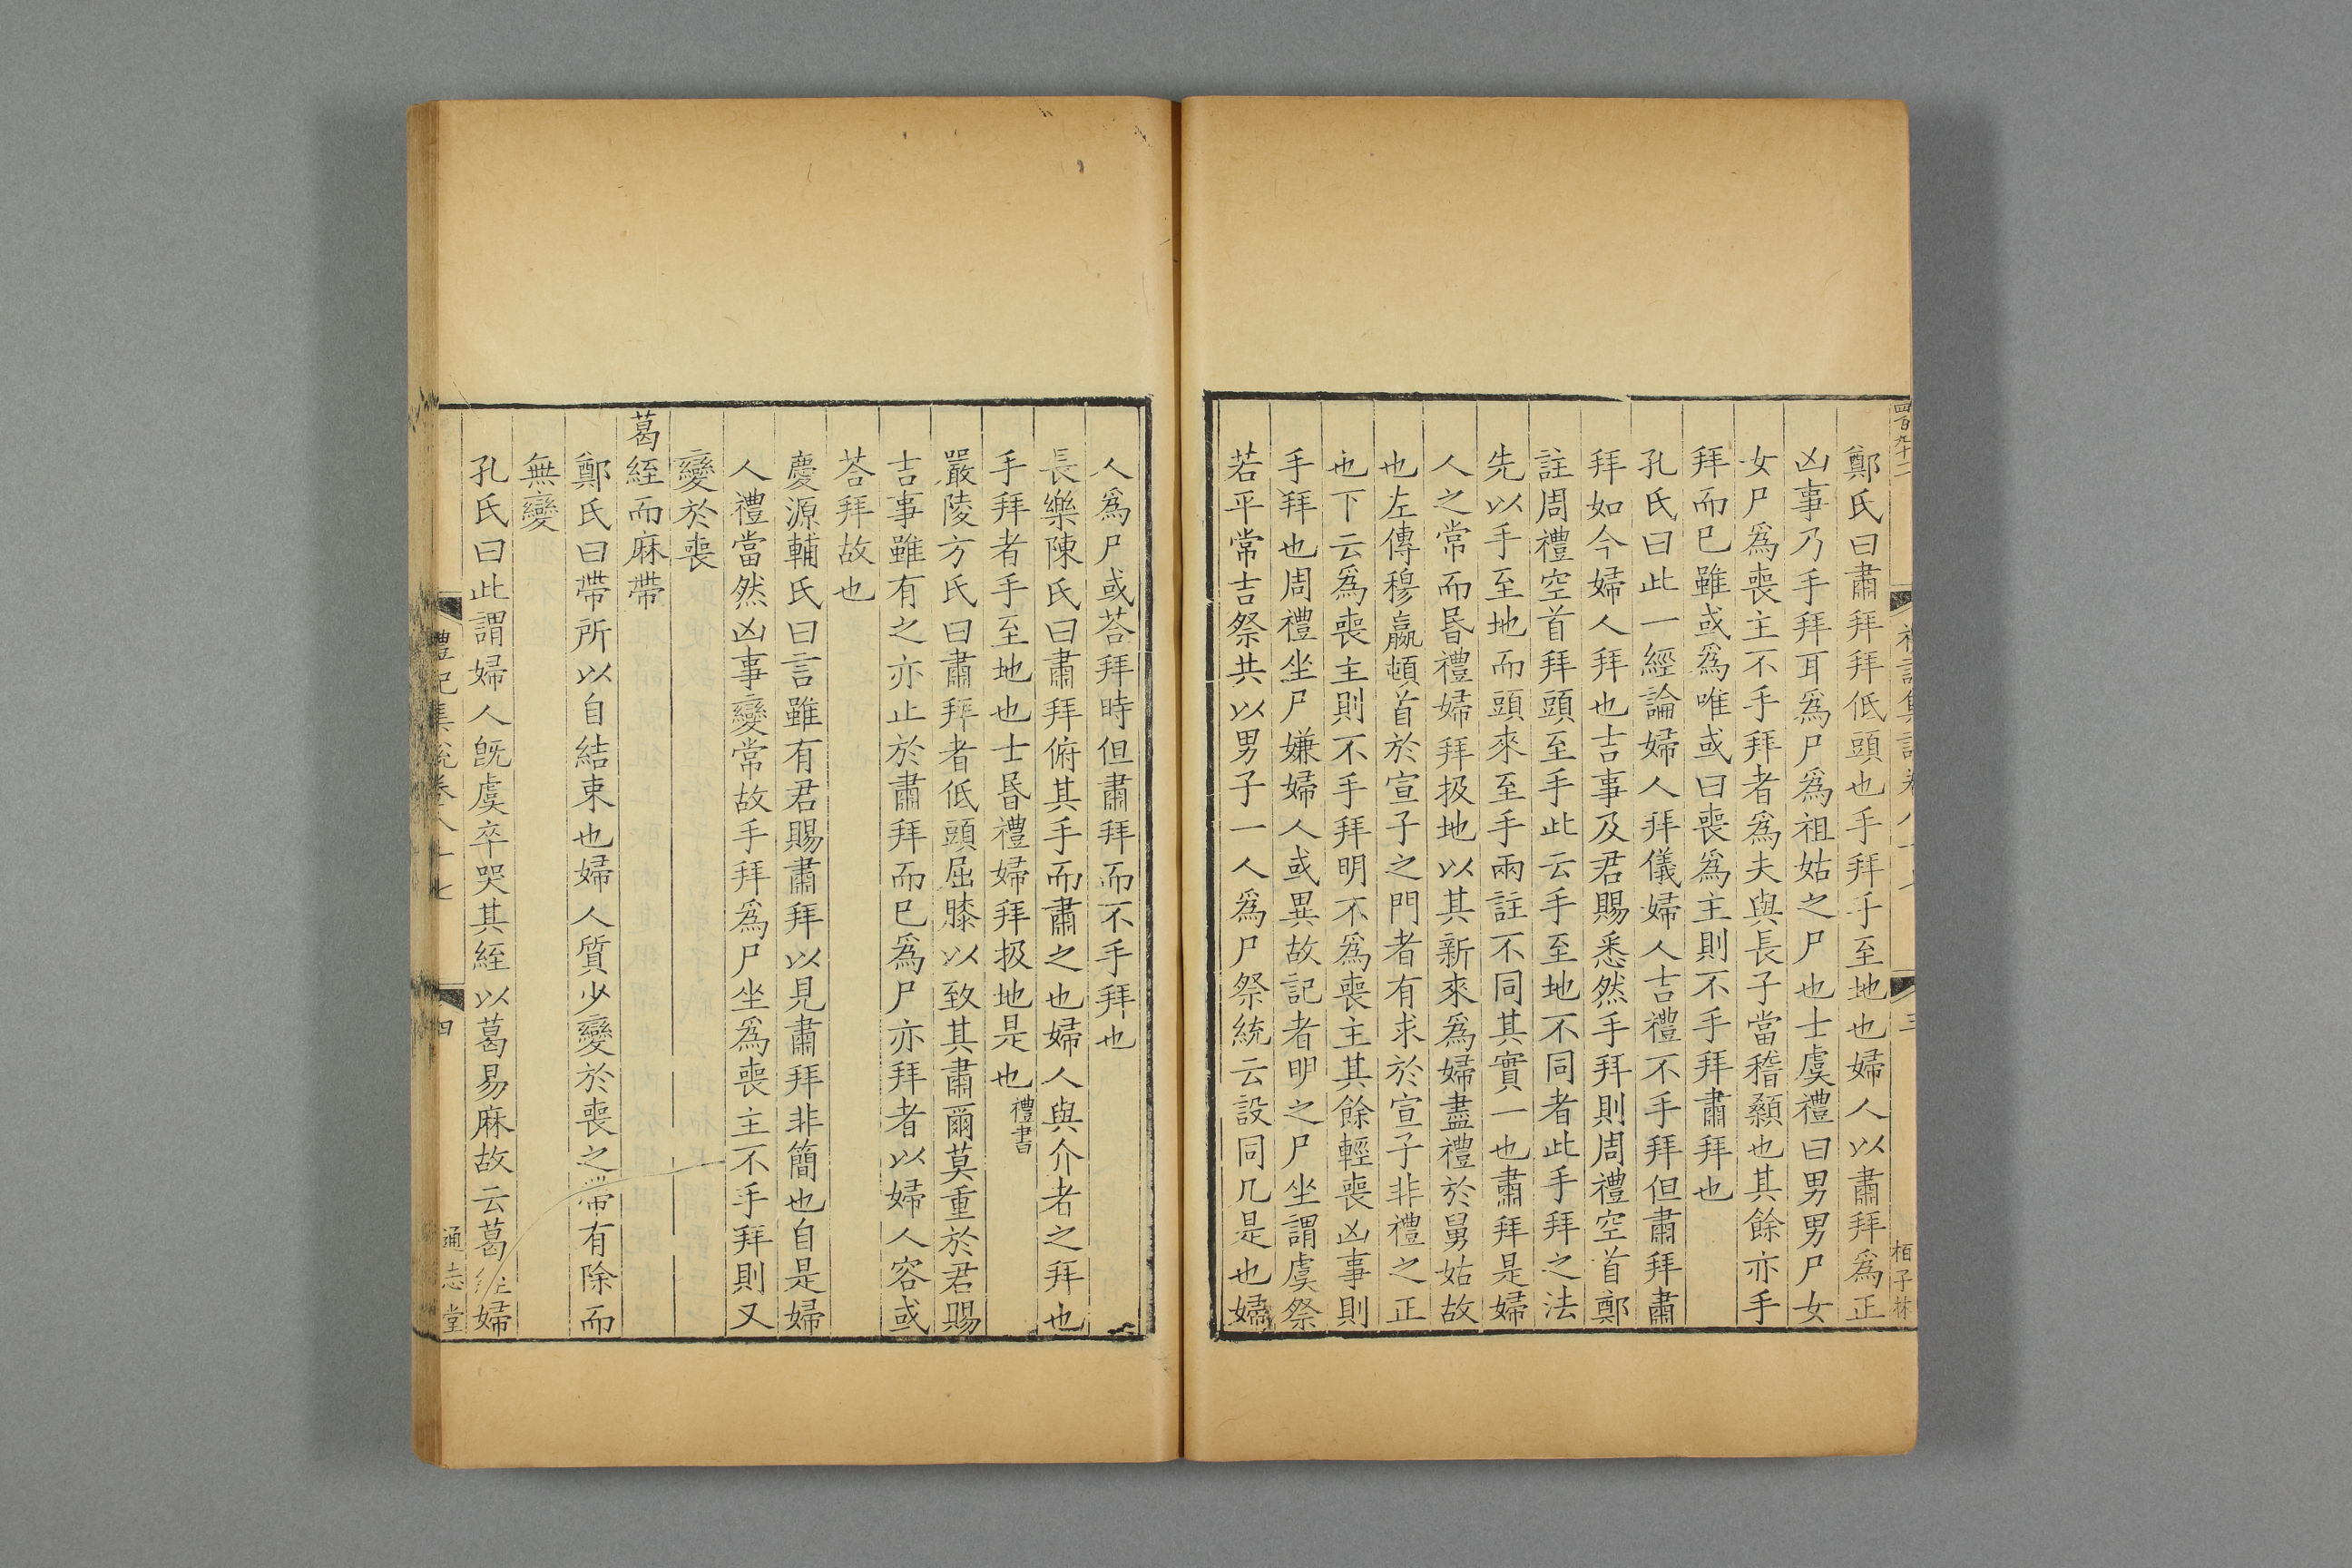 四百九十二
三
栢子林
鄭氏曰肅拜拜低頭也手拜手至地也婦人以肅拜爲正
凶事乃手拜耳爲尸爲祖姑之尸也士虞禮曰男男尸女
女尸爲喪主不手拜者爲夫與長子當稽顙也其餘亦手
拜而已雖或爲唯或曰喪爲主則不手拜肅拜也
孔氏曰此一經論婦人拜儀婦人吉禮不手拜但肅拜肅
拜如今婦人拜也吉事及君賜悉然手拜則周禮空首鄭
註周禮空首拜頭至手此云手至地不同者此手拜之法
先以手至地而頭來至手兩註不同其實一也肅拜是婦
人之常而昬禮婦拜扱地以其新來爲婦盡禮於舅姑故
也左傳穆嬴頓首於宣子之門者有求於宣子非禮之正
也下云爲喪主則不手拜明不爲喪主其餘輕喪凶事則
手拜也周禮坐尸嫌婦人或異故記者明之尸坐謂虞祭
若平常吉祭共以男子一人爲尸祭統云設同几是也婦
人爲尸或荅拜時但肅拜而不手拜也
長樂陳氏曰肅拜俯其手而肅之也婦人與介者之拜也
手拜者手至地也士昬禮婦拜扱地是也禮書
嚴陵方氏曰肅拜者低頭屈膝以致其肅爾莫重於君賜
吉事雖有之亦止於肅拜而已爲尸亦拜者以婦人容或
荅拜故也
慶源輔氏曰言雖有君賜肅拜以見肅拜非簡也自是婦
人禮當然凶事變常故手拜爲尸坐爲喪主不手拜則又
變於喪
葛絰而麻帶
鄭氏曰帶所以自結束也婦人質少變於喪之帶有除而
無變
孔氏曰此謂婦人旣虞卒哭其絰以葛易麻故云葛絰婦
禮記集說卷八十七
四
通志堂